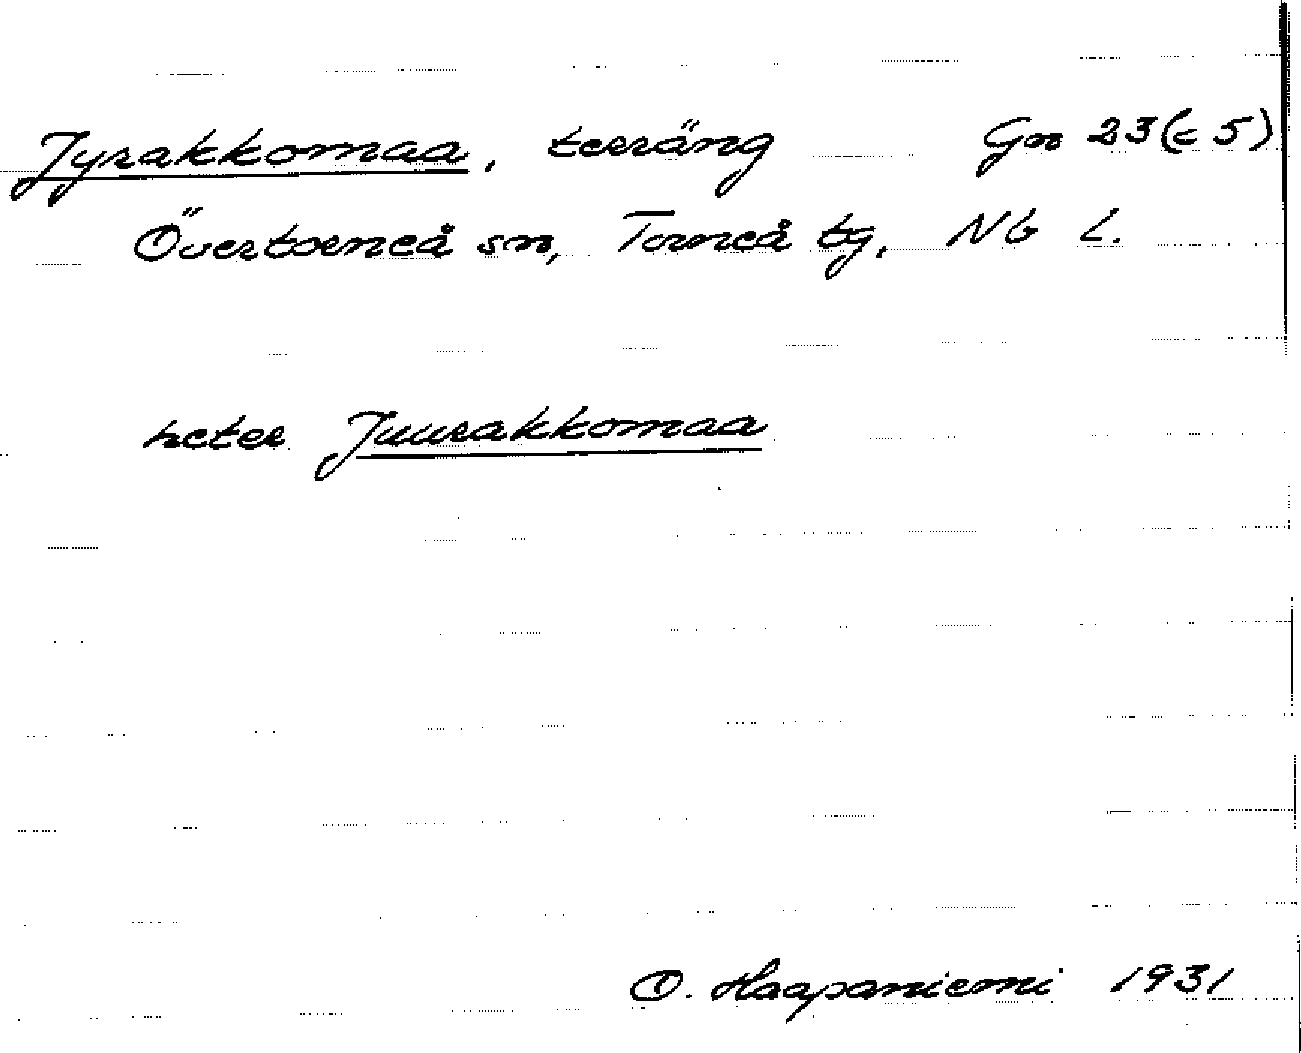 Jyrakkomaa, terräng Gn 23(c 5)
Övertorneå sn, Torneå tg, Nb L.
heter Juurakkomaa
O. Haapaniemi 1931